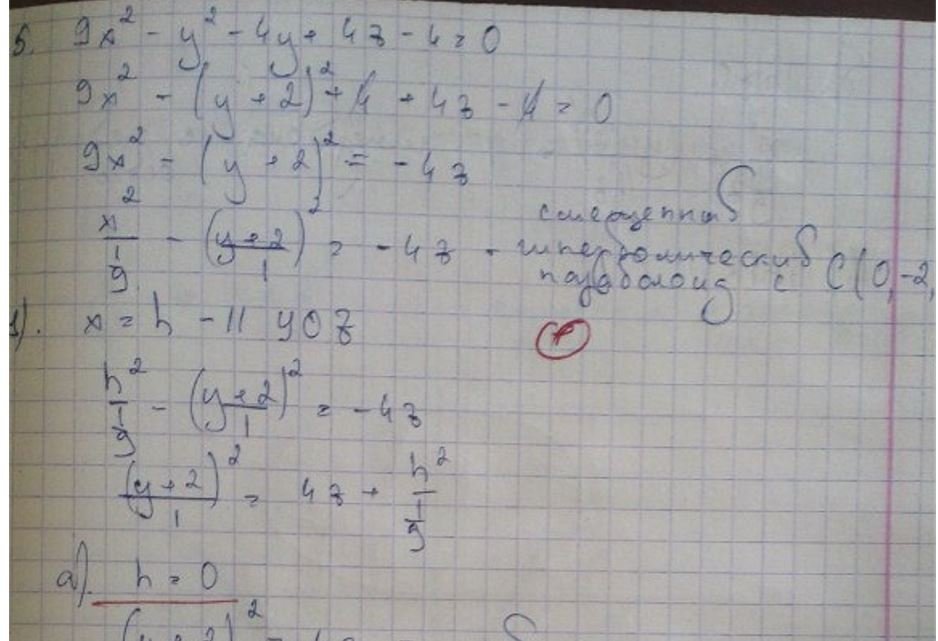 5. 9x² - y² - 4y + 4z - 4 = 0
9x² - (y + 2)² + 4 + 4z - 4 = 0
9x² - (y + 2)² = - 4z
x²/(1/9) - (y + 2)²/1 = - 4z - смещенный гиперболический параболоид с C(0, -2,
1). x = h - || yOz
h²/(1/9) - (y + 2)²/1 = - 4z
(y + 2)²/1 = 4z + h²/(1/9)
а). h = 0